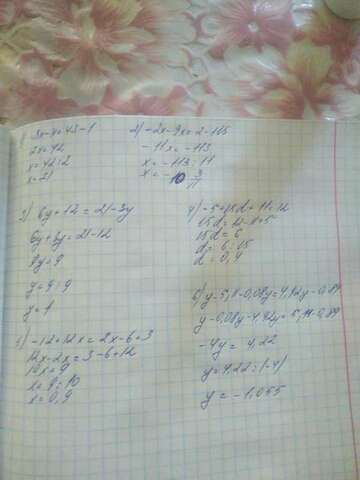 3x-4=43-1
2x=42
x=42:2
x=21
2) -2x-9x=2-115
-11x=-113
x=-113:11
x=-10 3/11
3) 6y+12=21-3y
6y+3y=21-12
9y=9
y=9:9
y=1
4) -5+15d+11=12
15d=12-11+5
15d=6
d=6:15
d=0,4
5) -12+12x=2x-6+3
12x-2x=3-6+12
10x=9
x=9:10
x=0,9
6) y-5,11-0,08y=4,92y-0,89
y-0,08y-4,92y=5,11-0,89
-4y=4,22
y=4,22:(-4)
y=-1,055